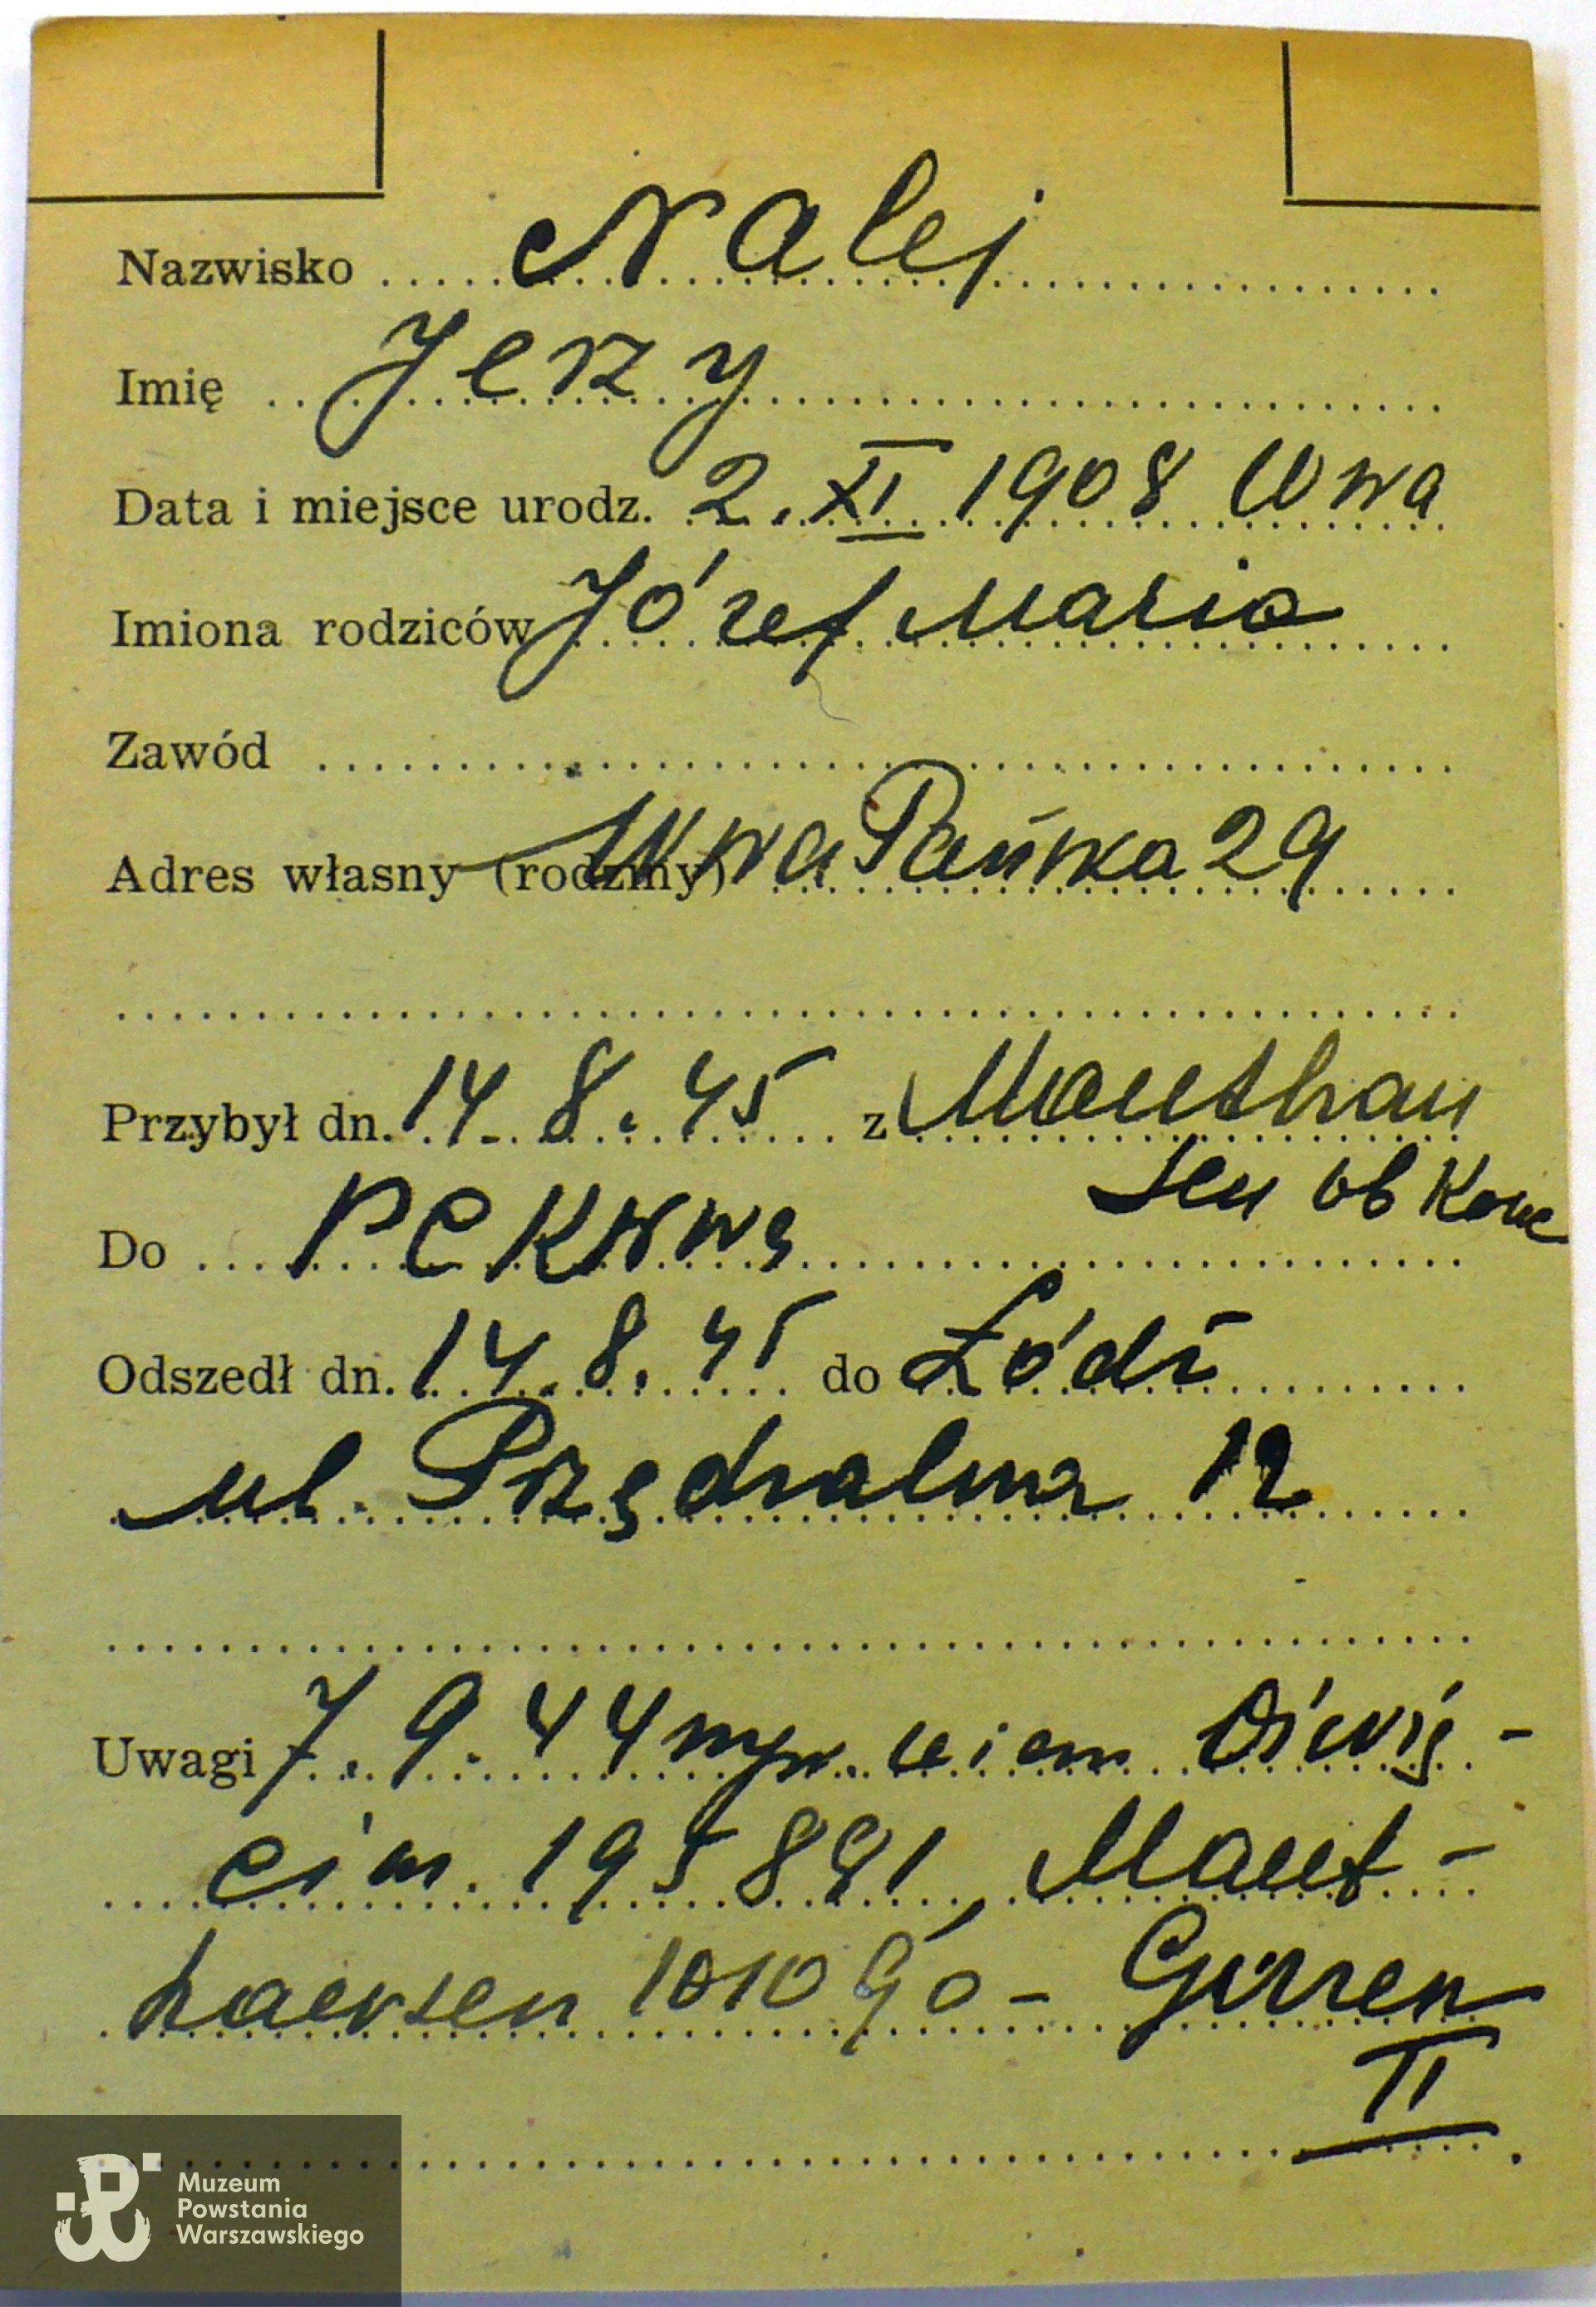 Nazwisko Nalej
Imię Jerzy
Data i miejsce urodz. 2. XI 1908 Wwa
Imiona rodziców Józef Maria
Zawód
Adres własny (rodziny) Wwa Pańska 29
Przybył dn. 14. 8. 45 z Mauthau
sen ob Konc
Do PCK Wwę
Odszedł dn. 14. 8. 45 do Łódź
ul. Przędzalna 12
Uwagi 7. 9. 44 Oświę-
cim. 195881, Maut-
hausen 101090 - Gusen
II
Muzeum
Powstania
Warszawskiego